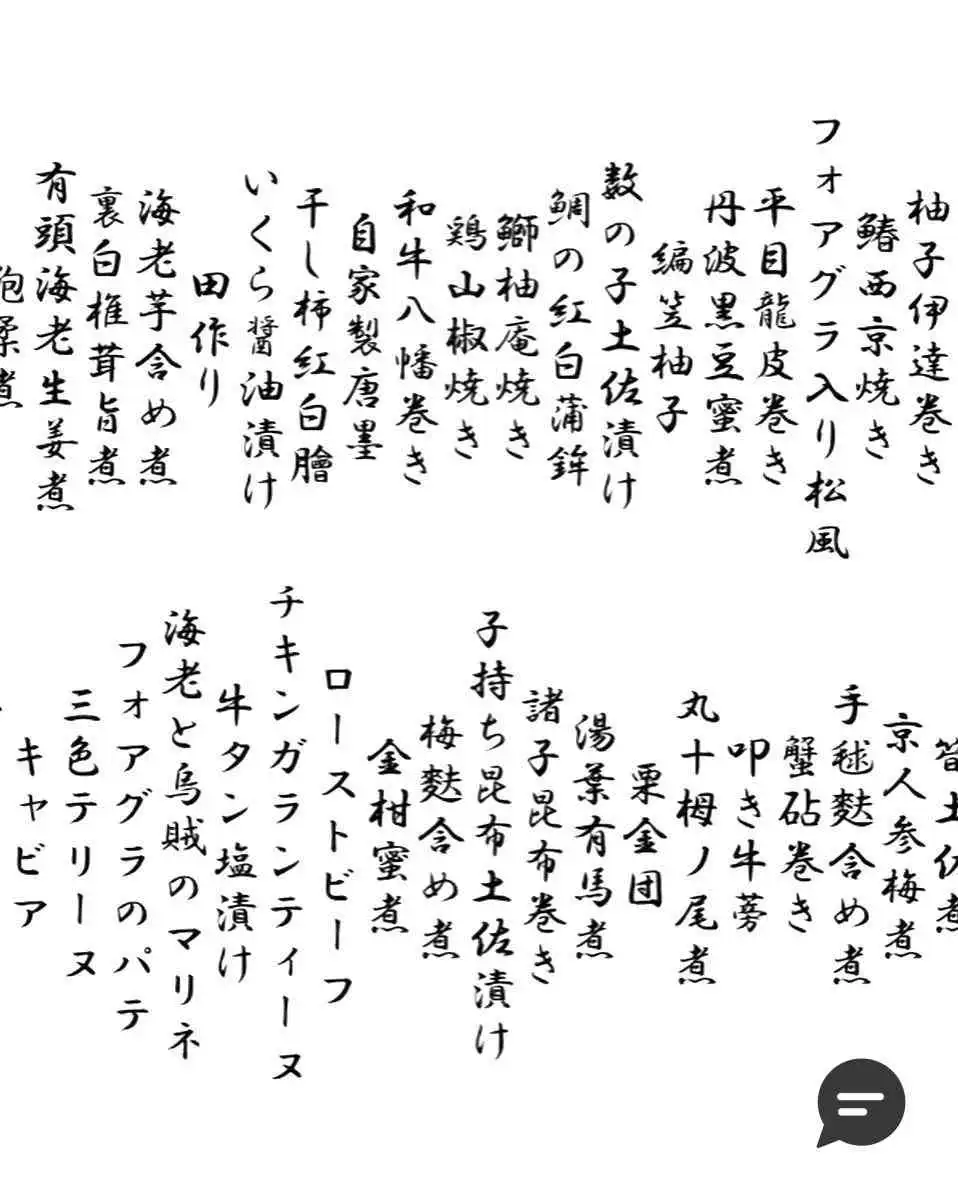 柚子伊達巻き
鰆西京焼き
フォアグラ入り松風
平目龍皮巻き
丹波黒豆蜜煮
編笠柚子
数の子土佐漬け
鯛の紅白蒲鉾
鰤柚庵焼き
鶏山椒焼き
和牛八幡巻き
自家製唐墨
干し柿紅白膾
いくら醤油漬け
田作り
海老芋含め煮
裏白椎茸旨煮
有頭海老生姜煮
煮
土佐煮
京人参梅煮
手毬麩含め煮
蟹砧巻き
叩き牛蒡
丸十栂ノ尾煮
栗金団
湯葉有馬煮
諸子昆布巻き
子持ち昆布土佐漬け
梅麩含め煮
金柑蜜煮
ローストビーフ
チキンガランティーヌ
牛タン塩漬け
海老と烏賊のマリネ
フォアグラのパテ
三色テリーヌ
キャビア